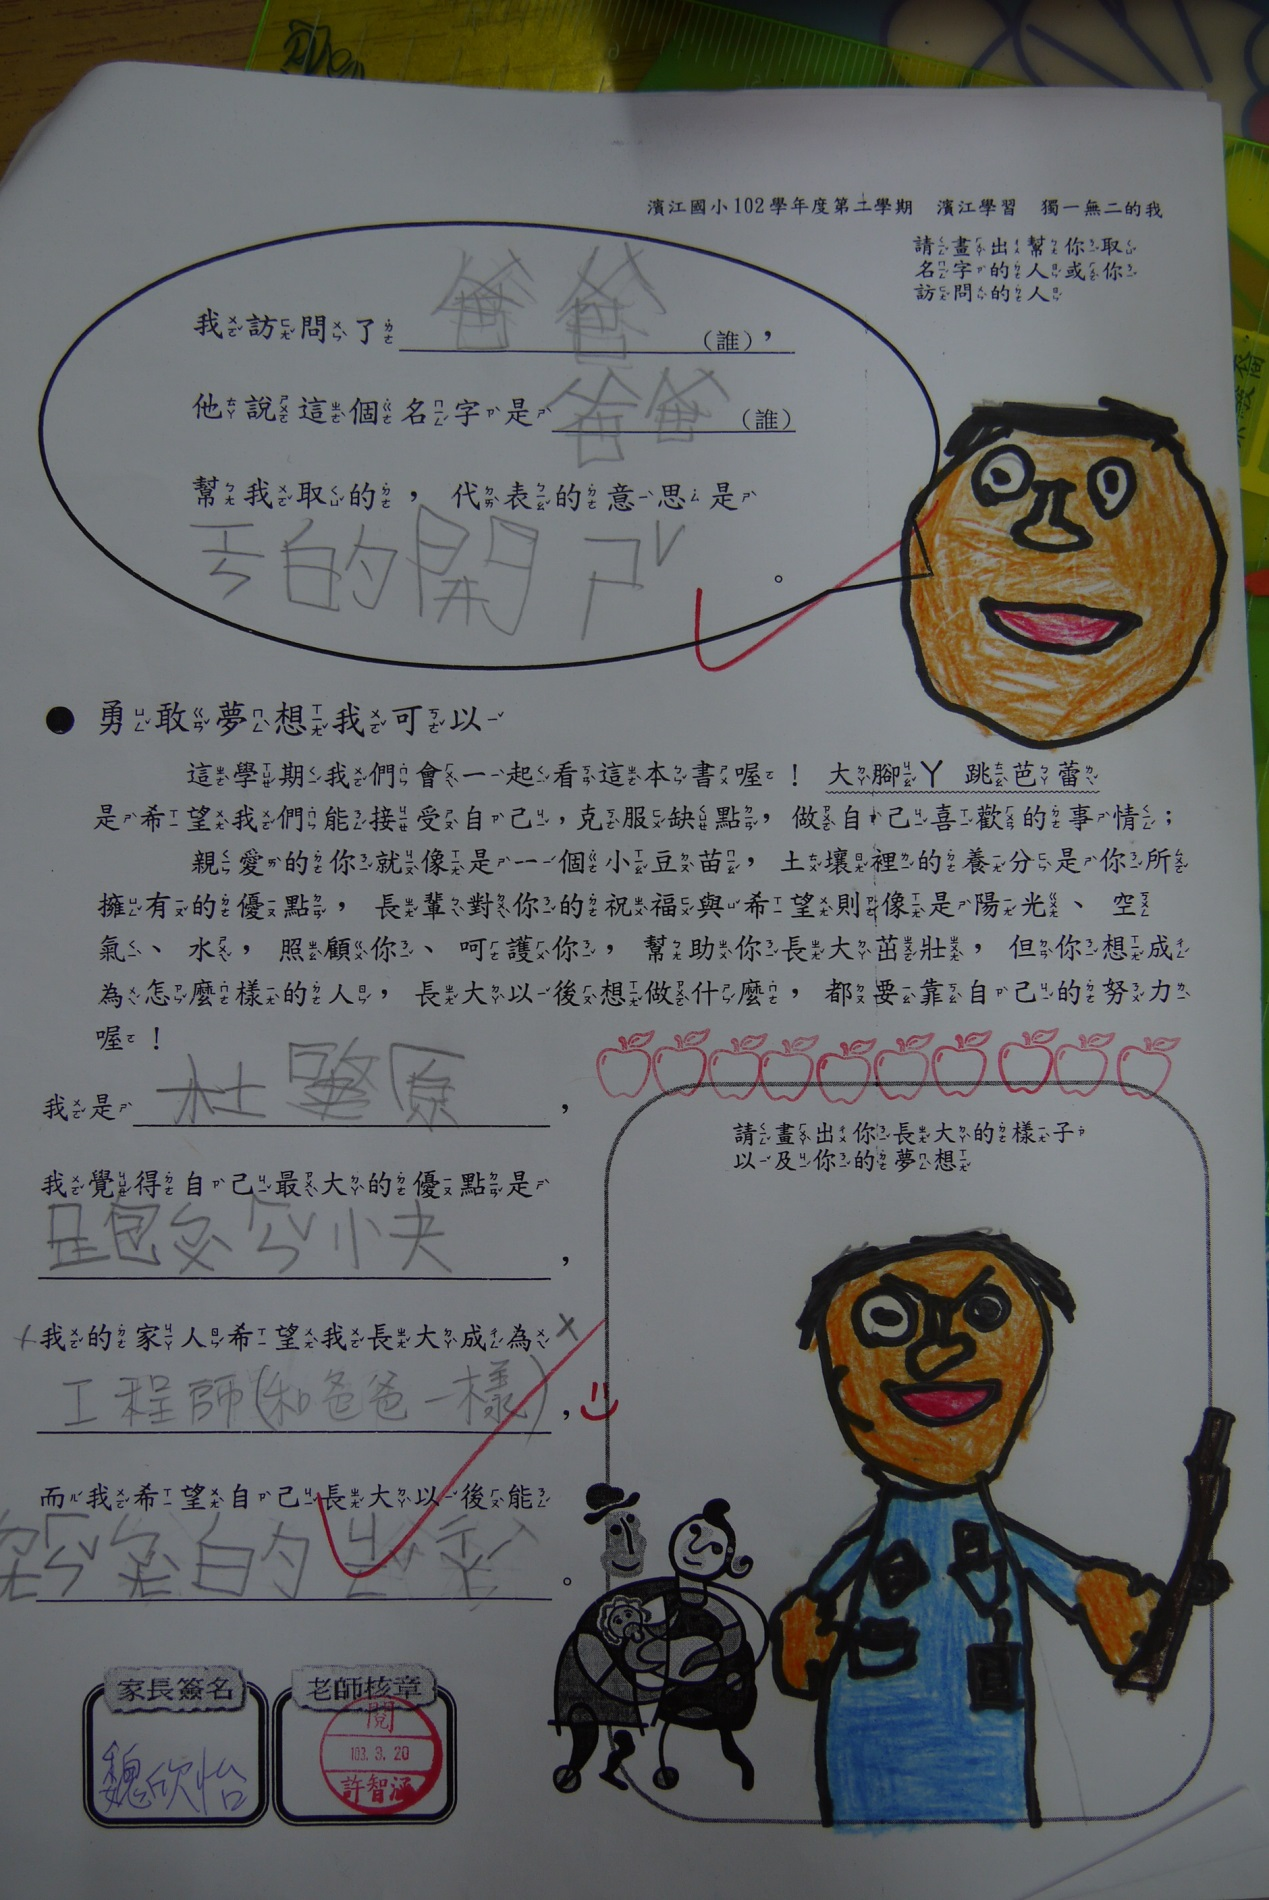 濱江國小102學年度第二學期　濱江學習　獨一無二的我
請畫出幫你取
名字的人或你
訪問的人
我訪問了爸爸(誰)，
他說這個名字是爸爸(誰)
幫我取的，代表的意思是
的開ㄕˇ。
●勇敢夢想我可以
這學期我們會一起看這本書喔！大腳丫跳芭蕾
是希望我們能接受自己，克服缺點，做自己喜歡的事情；
親愛的你就像是一個小豆苗，土壤裡的養分是你所
擁有的優點，長輩對你的祝福與希望則像是陽光、空
氣、水，照顧你、呵護你，幫助你長大茁壯，但你想成
為怎麼樣的人，長大以後想做什麼，都要靠自己的努力
喔！
我是杜原，
請畫出你長大的樣子
以及你的夢想
我覺得自己最大的優點是
，
我的家人希望我長大成為
工程師(和爸爸一樣)，
而我希望自己長大以後能
的。
家長簽名
老師核章
魏欣怡
閱
103. 3. 20
許智涵